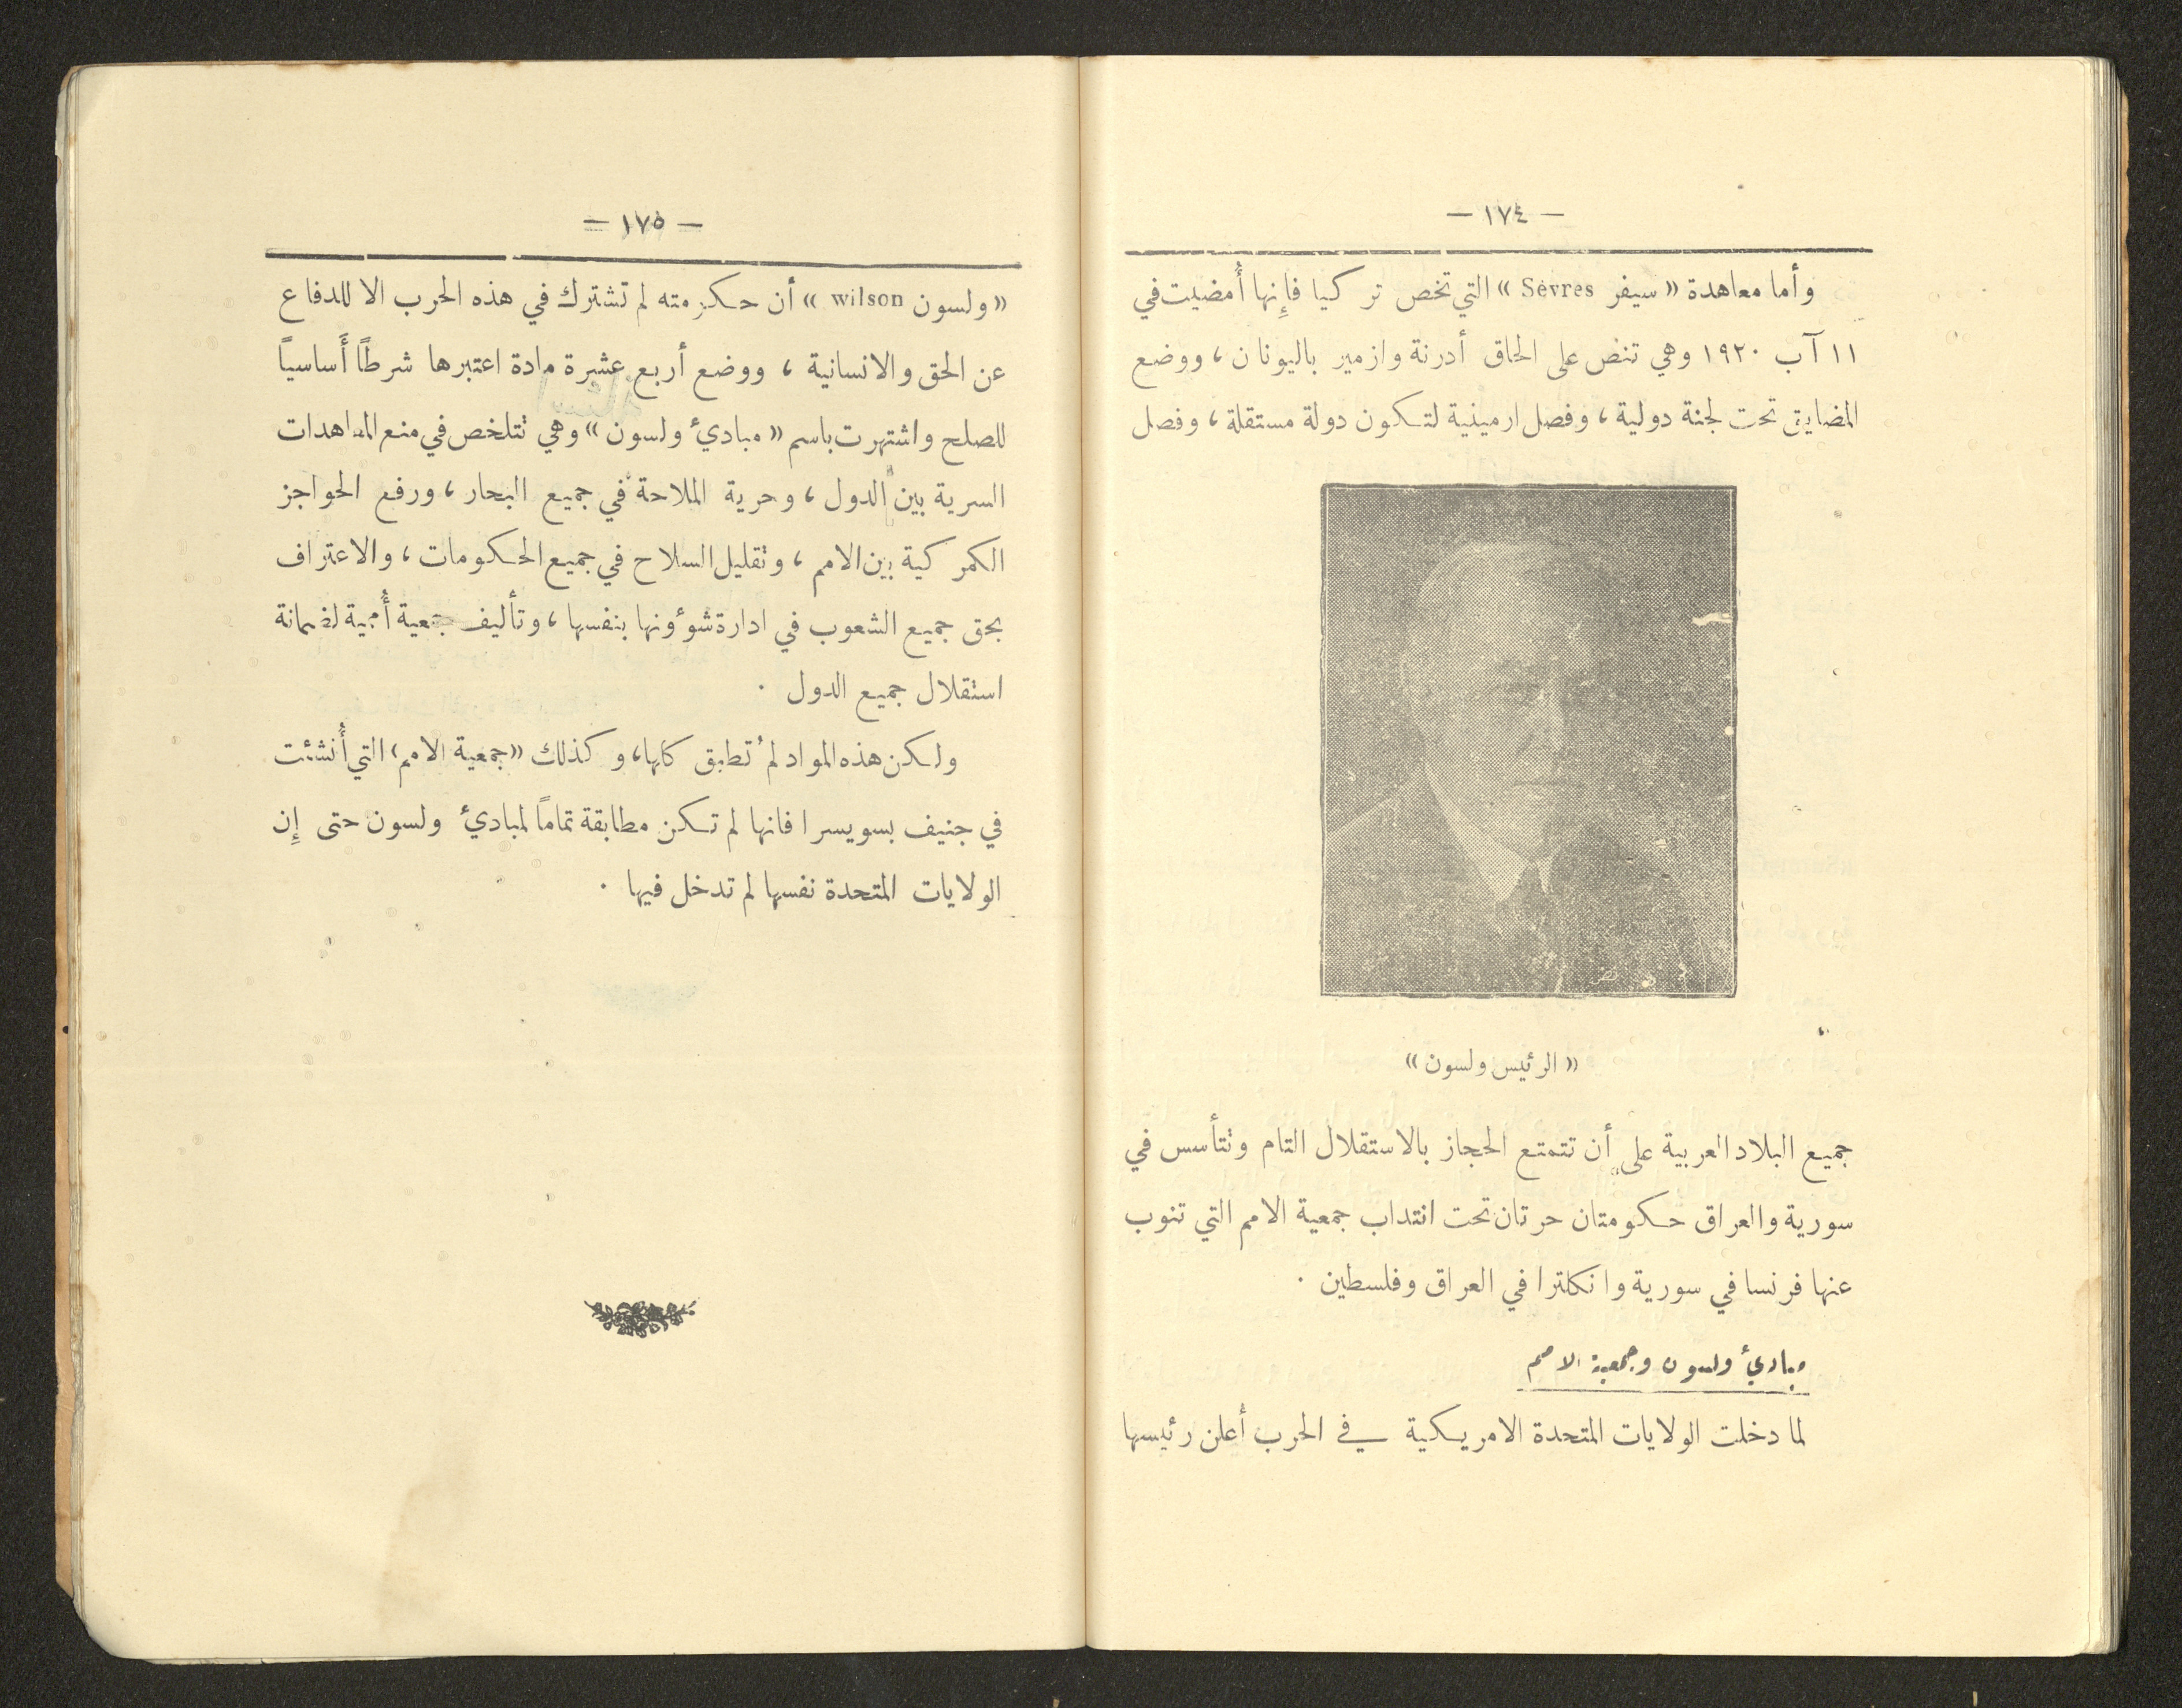 — ١٧٤ —
وأما معاهدة «سيفر Sèvres» التي تخص تركيا فإِنها أُمضيت في
١١ آب ١٩٢٠ وهي تنص على الحاق أدرنة وازمير باليونان، ووضع
المضايق تحت لجنة دولية، وفصل ارمينية لتكون دولة مستقلة، وفصل
«الرئيس ولسون»
جميع البلاد العربية على أن تتمتع الحجاز بالاستقلال التام وتتأسس في
سورية والعراق حكومتان حرتان تحت انتداب جمعية الامم التي تنوب
عنها فرنسا في سورية وانكلترا في العراق وفلسطين .
مبادئ ولسون وجمعية الامم
لما دخلت الولايات المتحدة الامريكية في الحرب أعلن رئيسها
— ١٧٥ —
«ولسون wilson» أن حكومته لم تشترك في هذه الحرب الا للدفاع
عن الحق والانسانية، ووضع أربع عشرة مادة اعتبرها شرطاً أَساسياً
للصلح واشتهرت باسم «مبادئ ولسون» وهي تتلخص في منع المعاهدات
السرية بين الدول، وحرية الملاحة في جميع البحار، ورفع الحواجز
الكمركية بين الامم، وتقليل السلاح في جميع الحكومات، والاعتراف
بحق جميع الشعوب في ادارة شؤونها بنفسها، وتأليف جمعية أُممية لضمانة
استقلال جميع الدول .
ولكن هذه المواد لم تطبق كلها، وكذلك «جمعية الامم» التي أُنشئت
في جنيف بسويسرا فانها لم تكن مطابقة تماماً لمبادئ ولسون حتى إِن
الولايات المتحدة نفسها لم تدخل فيها .